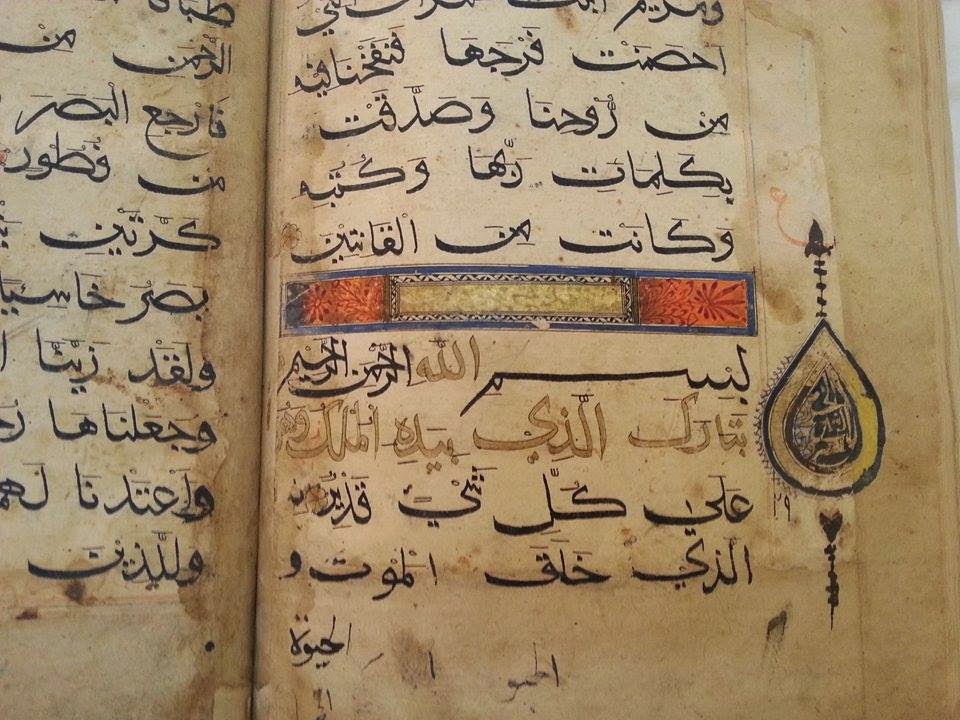 ومريم ابنت عمران التي
اَحصَنَتْ فَرْجَهَا فَنَفَخْنَا فيه
مِن رُّوحِنَا وَصَدَّقَتْ
بِكَلِمَاتِ رَبِّهَا وَكُتُبِهِ
وَكَانَتْ مِنَ الْقَانِتِيْنَ
بِسْمِ اللهِ الرَّحْمٰنِ الرَّحِيْمِ
تَبَارَكَ الَّذِيْ بِيَدِهِ الْمُلْكُ وَهُوَ
عَلٰى كُلِّ شَيْءٍ قَدِيْرٌ
الَّذِيْ خَلَقَ الْمَوْتَ وَ
الحيوة
الحيو
طباقا
الرَّحْمٰنِ مِنْ
فَارْجِعِ الْبَصَرَ
مِنْ فُطُورٍ
كَرَّتَيْنِ
بَصَرُ خَاسِيًا
وَلَقَدْ زَيَّنَّا
وَجَعَلْنَاهَا
وَاَعْتَدْنَا لَهُمْ
وَلِلَّذِيْنَ